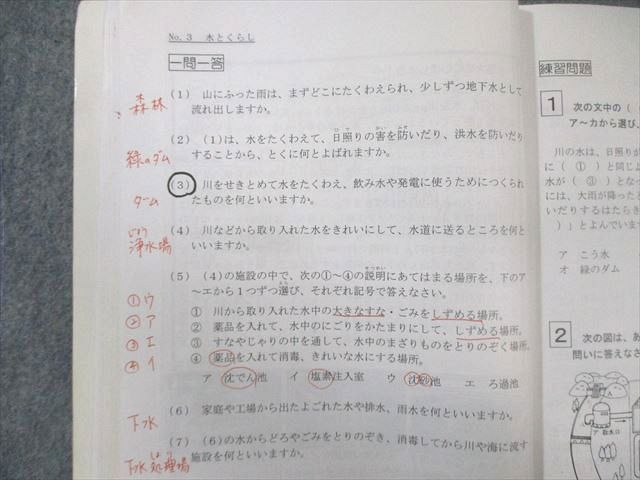 No.3 水とくらし
一問一答
森林
(1) 山にふった雨は、まずどこにたくわえられ、少しずつ地下水として
流れ出しますか。
緑のダム
(2) (1)は、水をたくわえて、日照りの害を防いだり、洪水を防いだり
することから、とくに何とよばれますか。
ダーム
(3) 川をせきとめて水をたくわえ、飲み水や発電に使うためにつくられ
たものを何といいますか。
じょう
浄水場
(4) 川などから取り入れた水をきれいにして、水道に送るところを何と
いいますか。
(5) (4)の施設の中で、次の①〜④の説明にあてはまる場所を、下のア
〜エから1つずつ選び、それぞれ記号で答えなさい。
①ウ
②ア
③エ
④イ
① 川から取り入れた水中の大きなすな・ごみをしずめる場所。
② 薬品を入れて、水中のにごりをかたまりにして、しずめる場所。
③ すなやじゃりの中を通して、水中のまざりものをとりのぞく場所。
④ 薬品を入れて消毒、きれいな水にする場所。
ア 沈でん池 イ 塩素注入室 ウ 沈砂池 エ ろ過池
下水
(6) 家庭や工場から出たよごれた水や排水、雨水を何といいますか。
下水処理場
(7) (6)の水からどろやごみをとりのぞき、消毒してから川や海に流す
施設を何といいますか。
練習問題
1 次の文中の(
ア〜カから選び、
川の水は、日照りが
に( ① )と同じよ
水が( ③ )とな
には、大雨が降ったと
いだりするはたらき
)」とよんでいます
ア こう水
オ 緑のダム
2 次の図は、あ
問いに答えな
ア 取水口